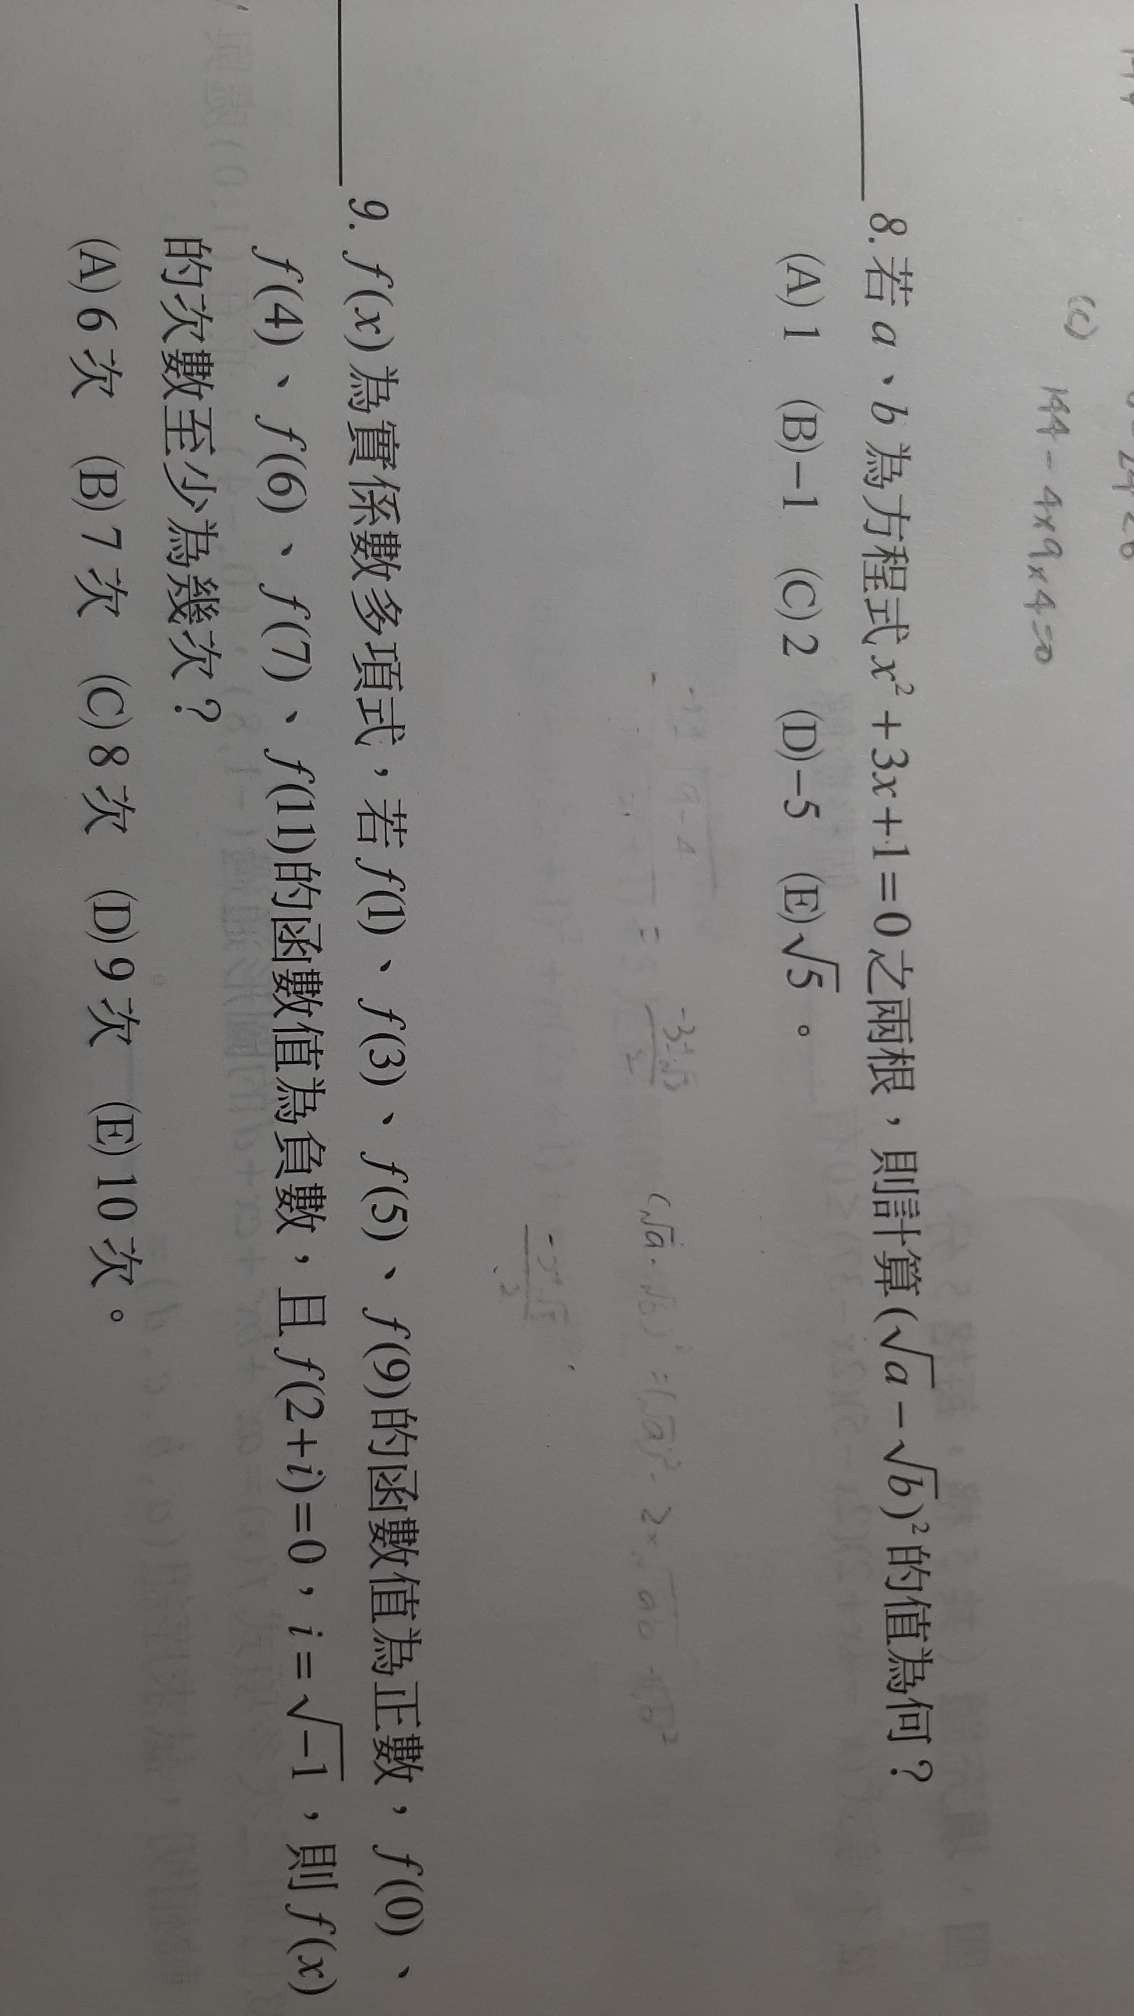 (c) 144-4×9×4=0
8.若 a、b 為方程式 x²+3x+1=0之兩根，則計算(√a−√b)²的值為何？
(A)1 (B)−1 (C)2 (D)−5 (E)√5。
9. f(x)為實係數多項式，若 f(1)、f(3)、f(5)、f(9)的函數值為正數，f(0)、
f(4)、f(6)、f(7)、f(11)的函數值為負數，且 f(2+i)=0，i=√−1，則 f(x)
的次數至少為幾次？
(A)6 次 (B)7 次 (C)8 次 (D)9 次 (E)10 次。